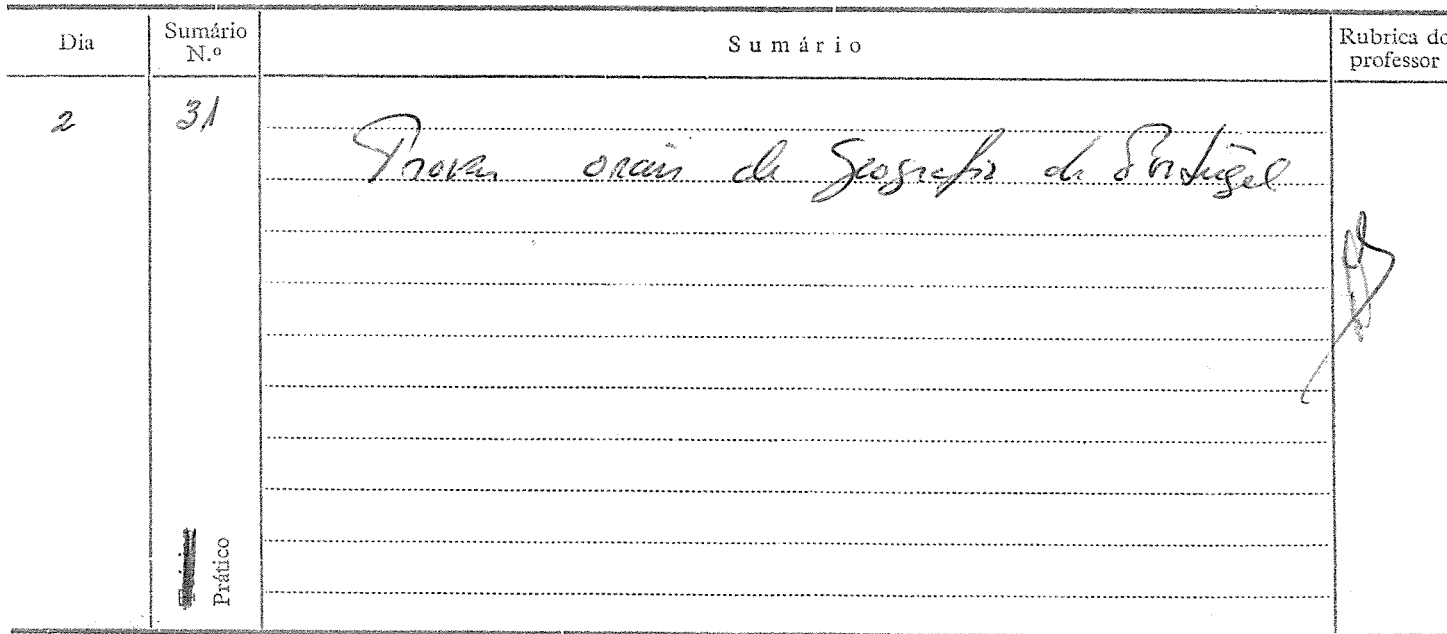 Dia
Sumário N.º
Sumário
Rubrica do professor
2
31
Provas orais de Geografia de Portugal
Prático